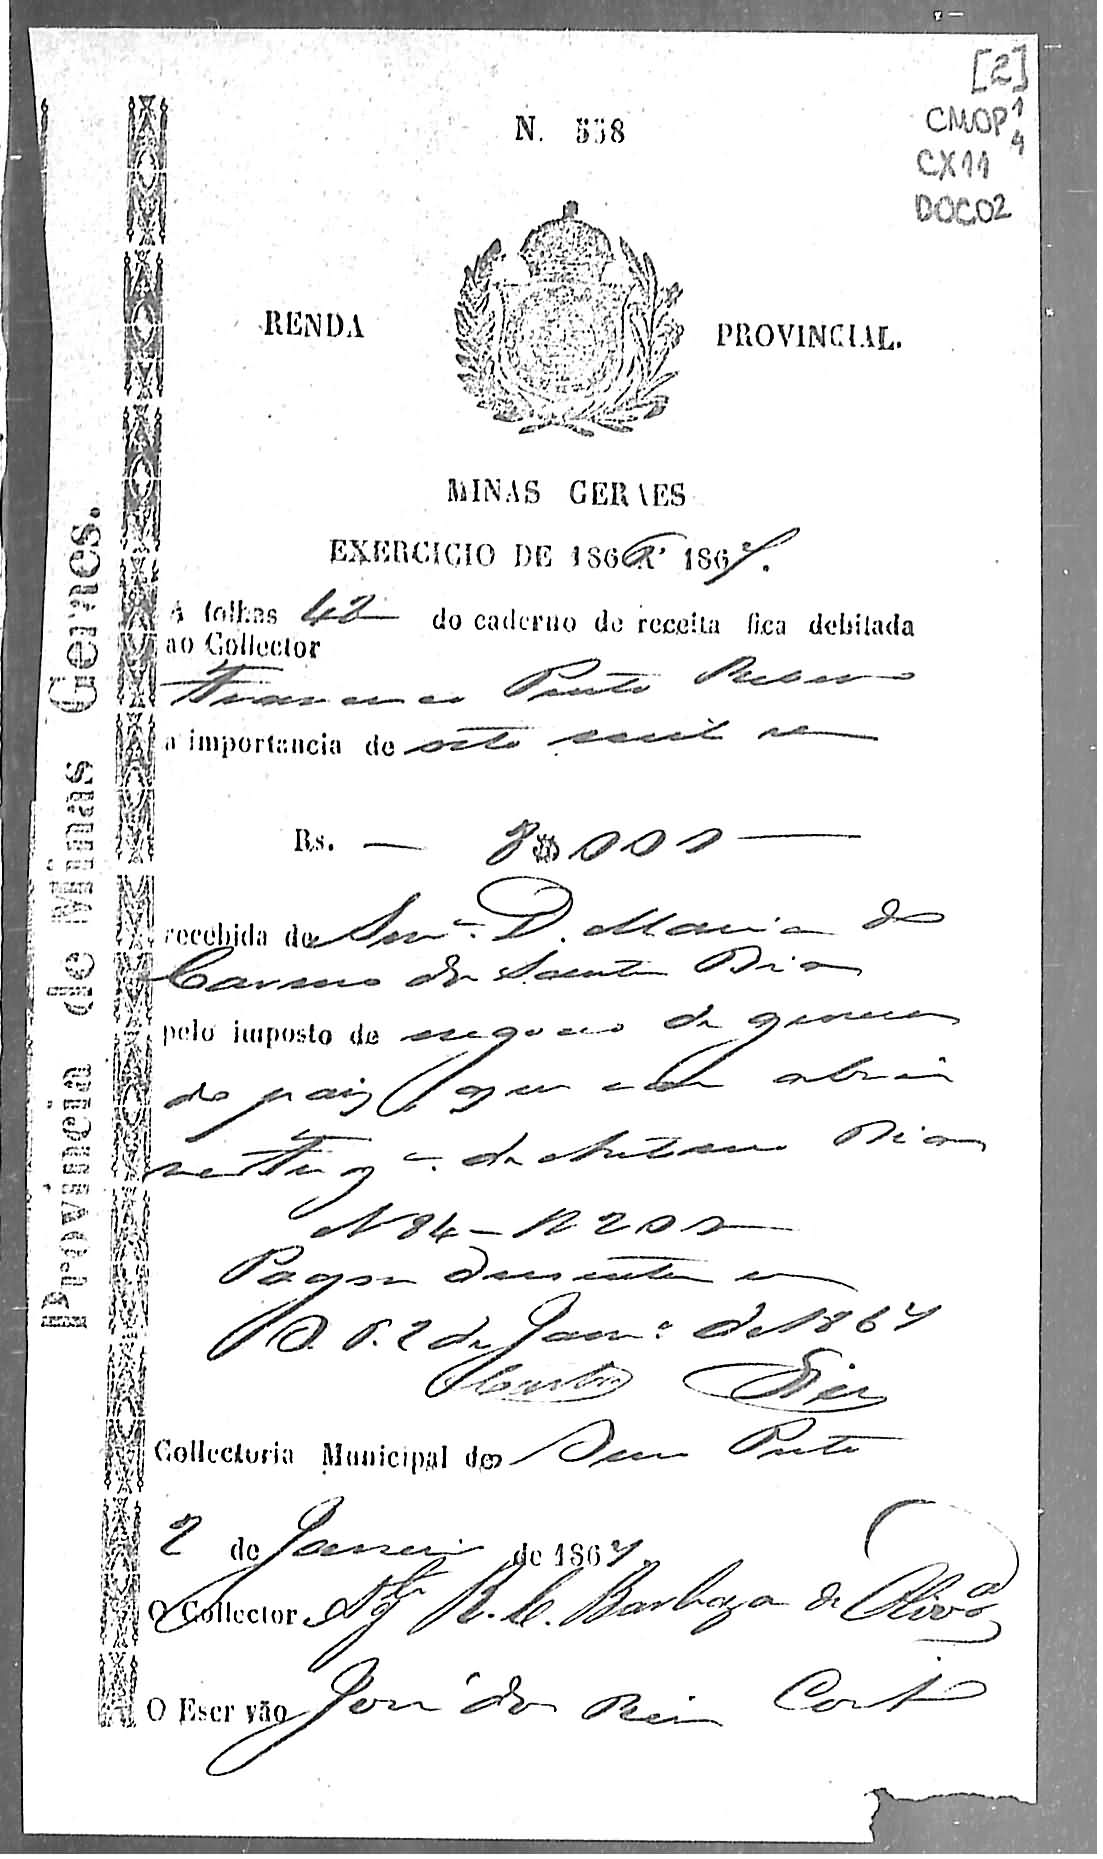 [2]
CMOP 1/4
CX11
DOC02
N. 558
RENDA PROVINCIAL.
MINAS GERAES
EXERCICIO DE 1866 A 1867.
Á folhas 42 do caderno de receita fica debitada
ao Collector
Francisco Pinto
a importancia de oito mil reis
Rs. — 8$000 —
recebida de Snrª. D. Maria do
Carmo dos Santos Dias
pelo imposto de negocio de generos
do paiz, que abrio
de Antonio Dias
N 84 — R 200
Pagou dusentos rs
O. P. 2 de Janrº de 1867
Collectoria Municipal do Ouro Preto
2 de Janeiro de 1867
O Collector R. C. Barboza de Olivrª
O Escrivão José dos Reis
Provincia de Minas Geraes.